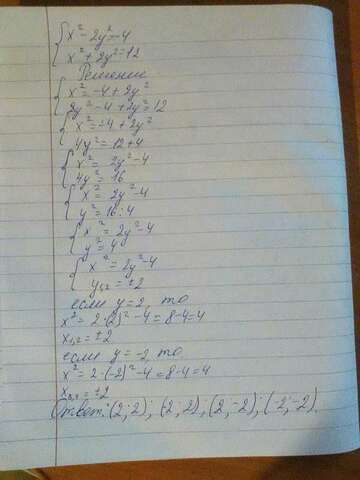 { x² - 2y² = -4
x² + 2y² = 12
Решение
{ x² = -4 + 2y²
2y² - 4 + 2y² = 12
{ x² = -4 + 2y²
4y² = 12 + 4
{ x² = 2y² - 4
4y² = 16
{ x² = 2y² - 4
y² = 16 : 4
{ x² = 2y² - 4
y² = 4
{ x² = 2y² - 4
y₁,₂ = ±2
если y = 2, то
x² = 2 · (2)² - 4 = 8 - 4 = 4
x₁,₂ = ±2
если y = -2, то
x² = 2 · (-2)² - 4 = 8 - 4 = 4
x₃,₄ = ±2
Ответ: (2; 2); (2; 2); (2; -2); (-2; -2).